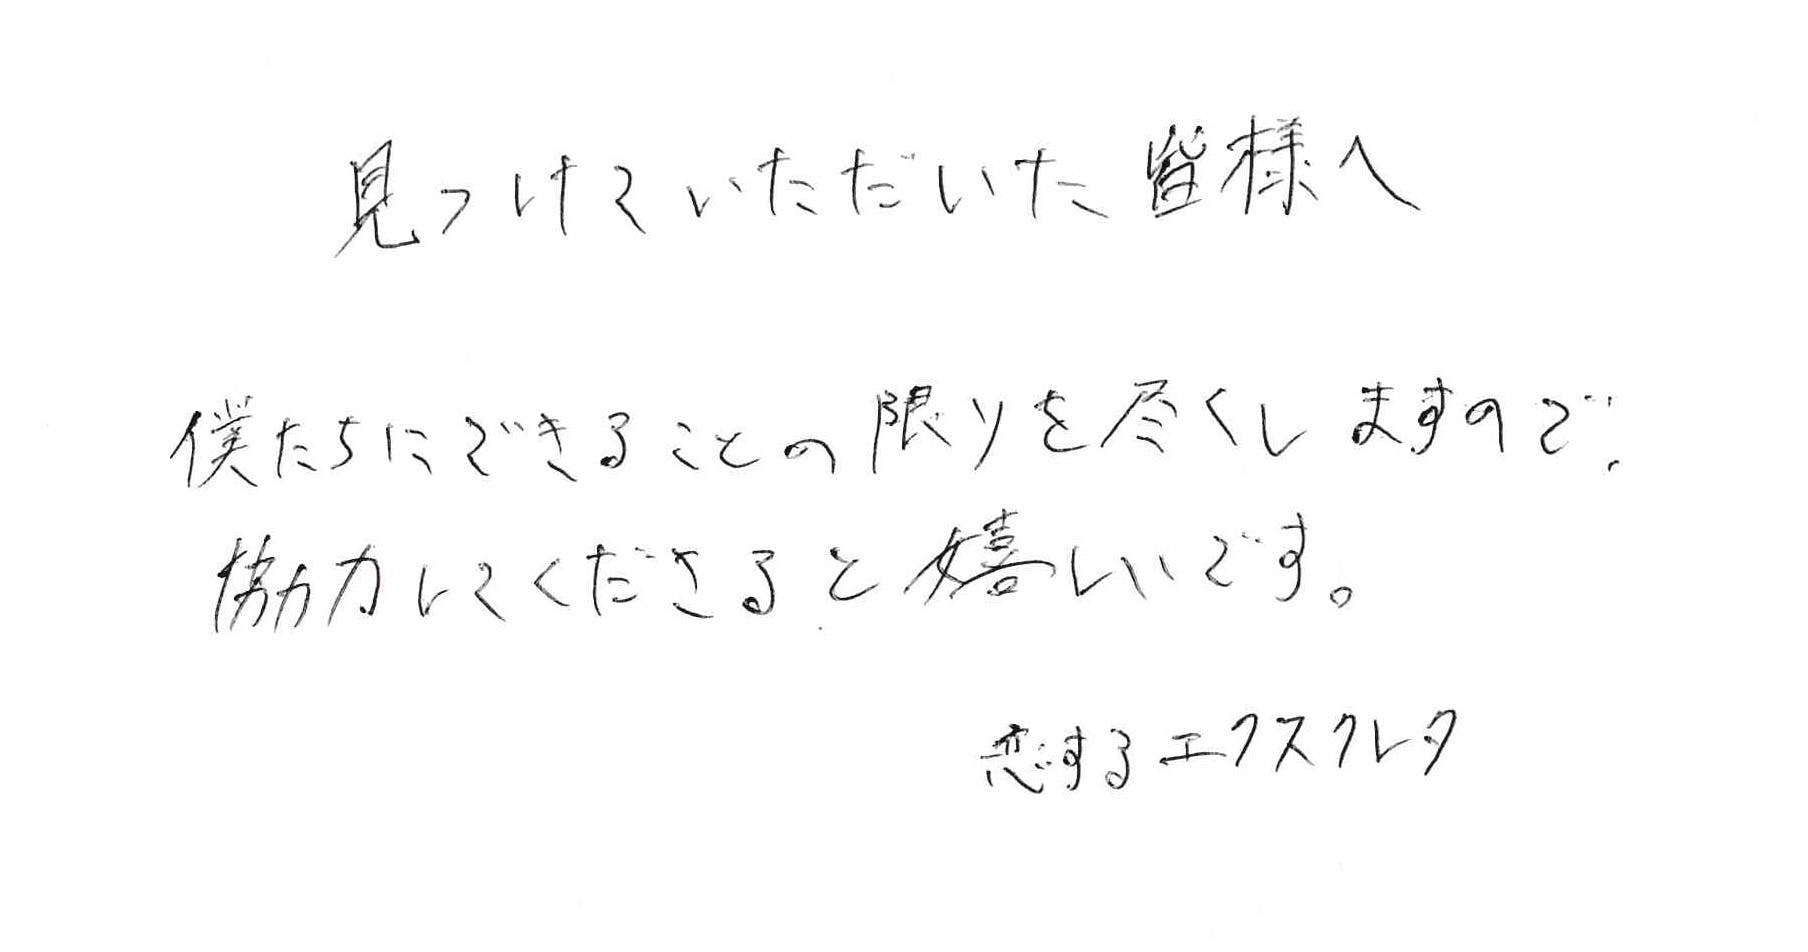 見つけていただいた皆様へ
僕たちにできることの限りを尽くしますので、
協力してくださると嬉しいです。
恋するエクスクレタ